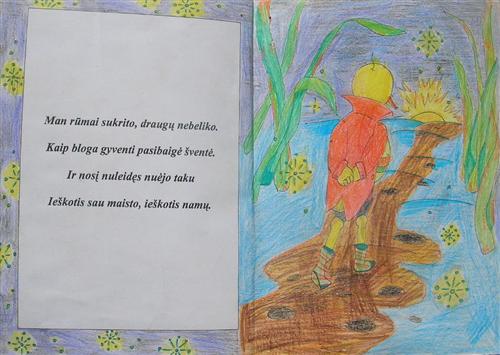 Man rūmai sukrito, draugų nebeliko.
Kaip bloga gyventi pasibaigė šventė.
Ir nosį nuleidęs nuėjo taku
Ieškotis sau maisto, ieškotis namų.